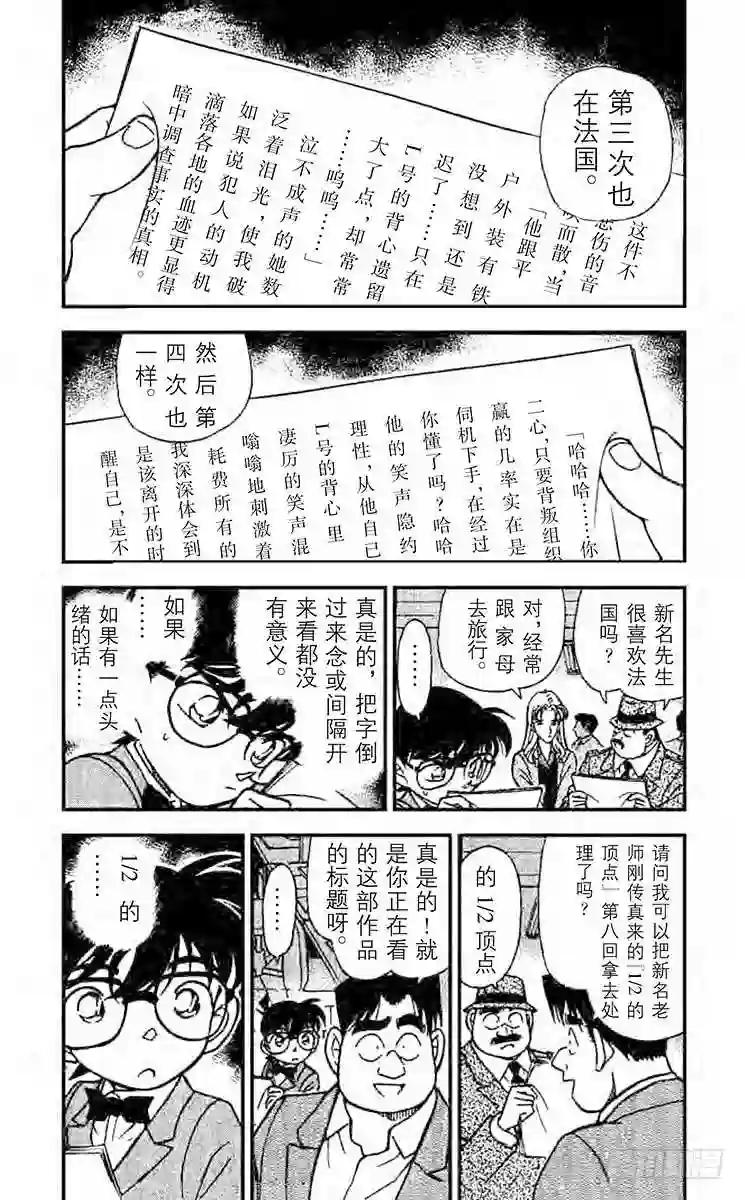 第三次也
在法国。
这件不
悲伤的音
而散，当
「他跟平
户外装有铁
没想到还是
迟了……只在
L号的背心遗留
大了点，却常常
……呜呜……」
泣不成声的她数
泛着泪光，使我破
如果说犯人的动机
滴落各地的血迹更显得
暗中调查事实的真相。
然后第
四次也
一样。
「哈哈哈……你
二心，只要背叛组织
赢的几率实在是
伺机下手，在经过
你懂了吗？哈哈
他的笑声隐约
理性，从他自己
L号的背心里
凄厉的笑声混
嗡嗡地刺激着
耗费所有的
我深深体会到
是该离开的时
醒自己，是不
新名先生
很喜欢法
国吗？
对，经常
跟家母
去旅行。
……
真是的，把字倒
过来念或间隔开
来看都没
有意义。
如果
……
如果有一点头
绪的话……
请问我可以把新名老
师刚传真来的「1/2的
顶点」第八回拿去处
理了吗？
的1/2顶点
……
真是的！就
是你正在看
的这部作品
的标题呀。
1/2的
……